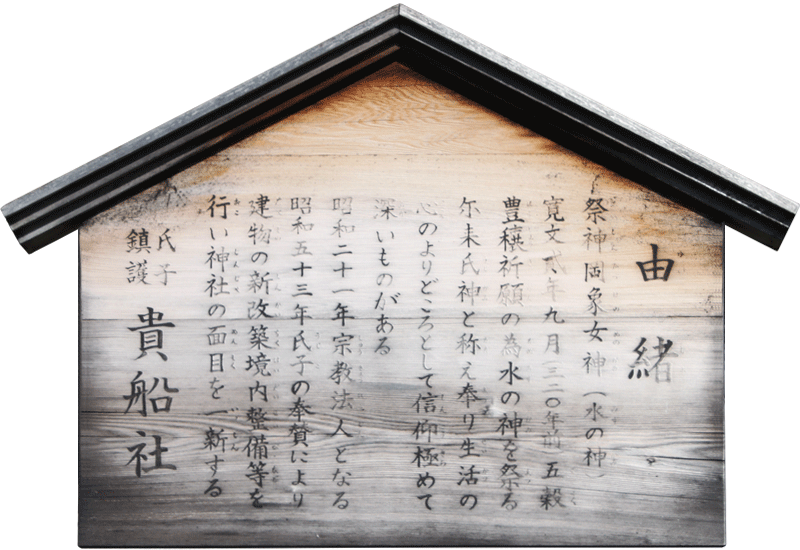 由緒
祭神罔象女神(水の神)
寛文弐年九月(三二〇年前)五穀
豊穣祈願の為水の神を祭る
尓来氏神と称え奉り生活の
心のよりどころとして信仰極めて
深いものがある
昭和二十一年宗教法人となる
昭和五十三年氏子の奉賛により
建物の新改築境内整備等を
行い神社の面目を一新する
氏子
鎮護
貴船社